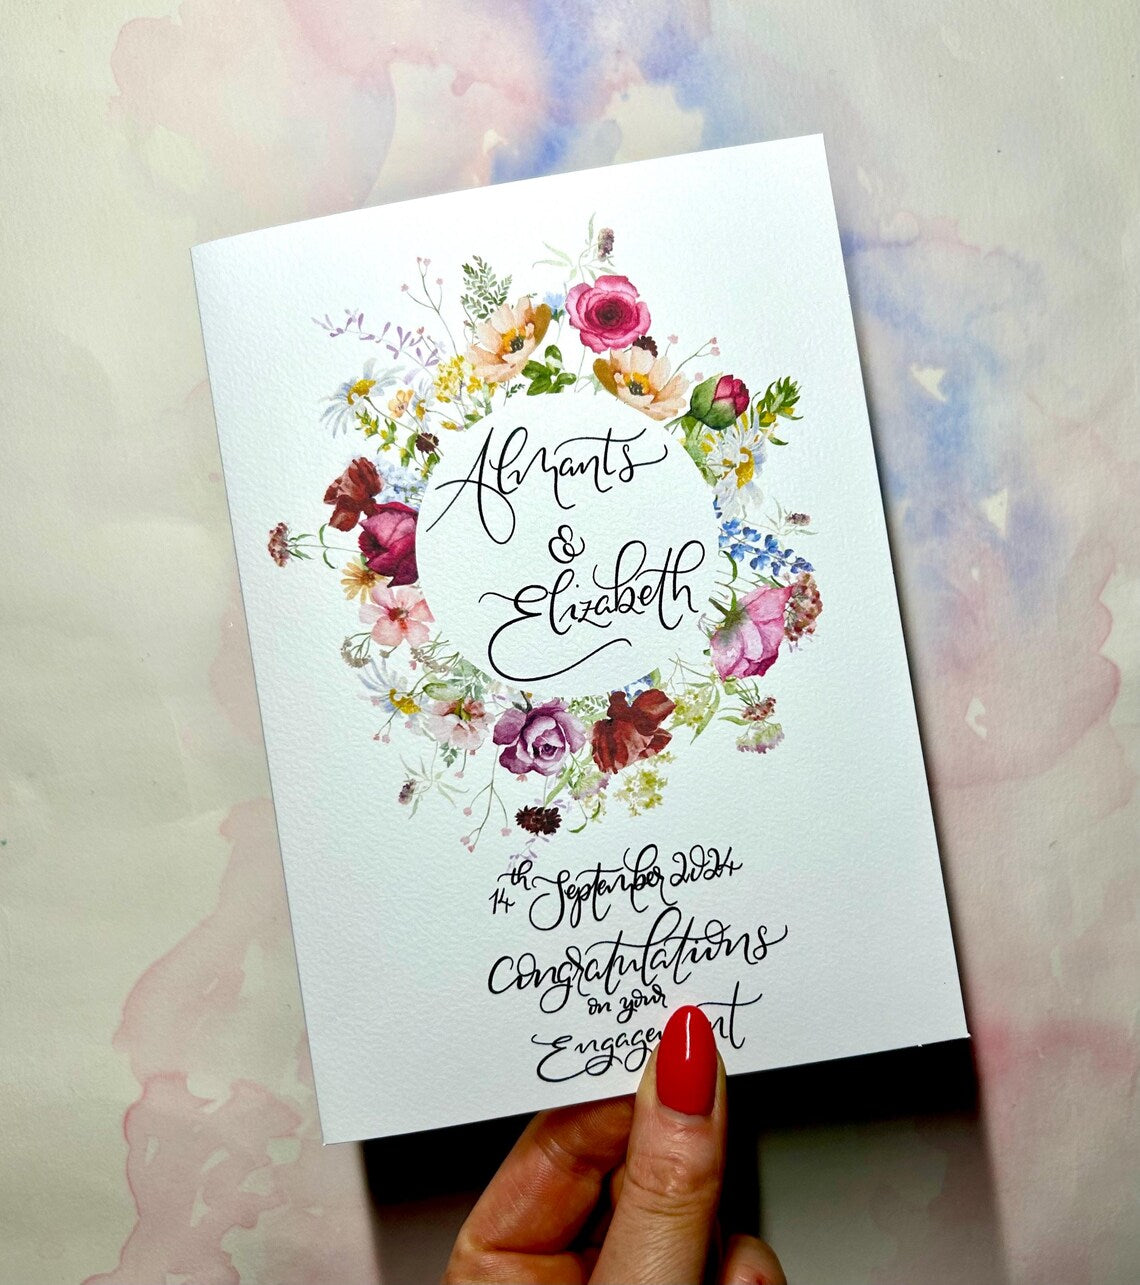 Almants
&
Elizabeth
14th September 2024
Congratulations
on your
Engagement